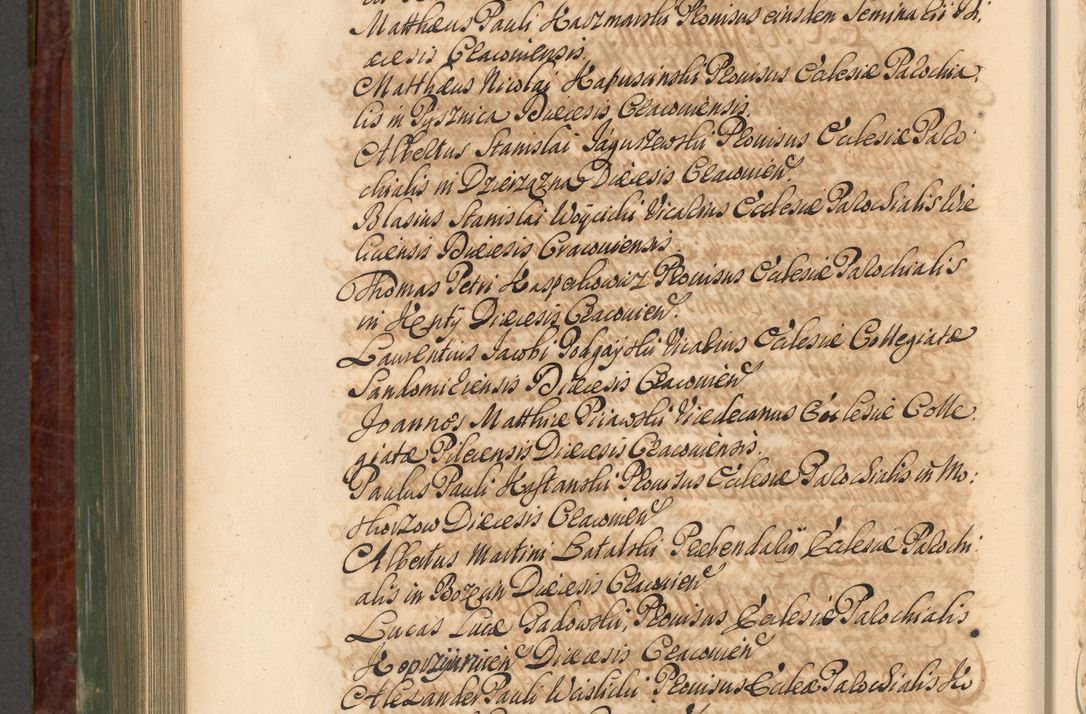 Matthæus Pauli Kaszmarski Provisus eiusdem Seminarii Di,
æcesis Cracoviensis.
Matthæus Nicolai Kapuscinski Provisus Ecclesiæ Parochia,
lis in Pysznica Diæcesis Cracoviensis.
Albertus Stanislai Jaguszewski Provisus Ecclesiæ Paro
chialis in Dzierzązna Diæcesis Cracovien̄.
Blasius Stanislai Woycicki Vicarius Ecclesiæ Parochialis Wie
liciensis Diæcesis Cracoviensis.
Thomas Petri Kasperkowicz Provisus Ecclesiæ Parochialis
in Kęnty Diæcesis Cracovien̄.
Laurentius Jacobi Podgayski Vicarius Ecclesiæ Collegiatæ
Sandomiriensis Diæcesis Cracovien̄
Joannes Matthiæ Pirawski Vicedecanus Ecclesiæ Colle
giatæ Pilecensis Diæcesis Cracoviensis.
Paulus Pauli Kustanski Provisus Ecclesiæ Parochialis in Mo:
skorzow Diæcesis Cracovien̄
Albertus Martini Batalski Præbendariÿ Ecclesiæ Parochi
alis in Bozęcin Diæcesis Cracovien̄
Lucas Lucæ Gadowski, Provisus Ecclesiæ Parochialis
Diæcesis Cracovien̄
Alexander Pauli Wcislicki Provisus Ecclesæ Parochialis Ko